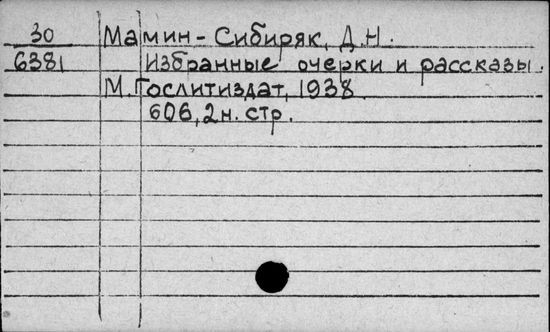 30 Мамин-Сибиряк, Д.Н.
6381 Избранные очерки и рассказы.
М. Гослитиздат, 1938
606, 2н. стр.